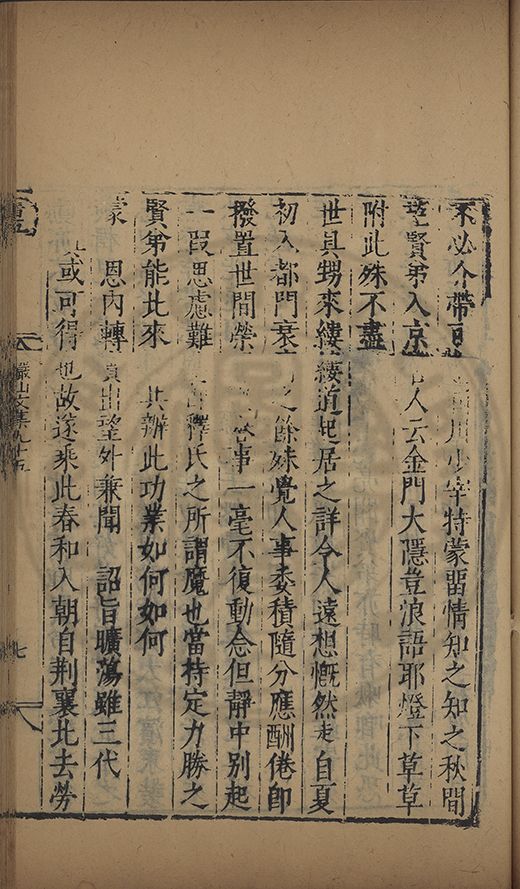 不必介帶 川少宰特蒙留情知之知之秋間
望賢弟入京 人云金門大隱豈浪語耶燈下草草
附此殊不盡
世具甥來縷縷道起居之詳令人遠想慨然走自夏
初入都門衰 之餘殊覺人事委積隨分應酬倦即
撥置世間榮 事一毫不復動念但靜中別起
一段思慮難 釋氏之所謂魔也當持定力勝之
賢弟能北來 共辨此功業如何如何
蒙 恩內轉 出望外兼聞 詔旨曠蕩雖三代
或可得也故遂乘此春和入朝自荆襄北去勞
文集九十五
七